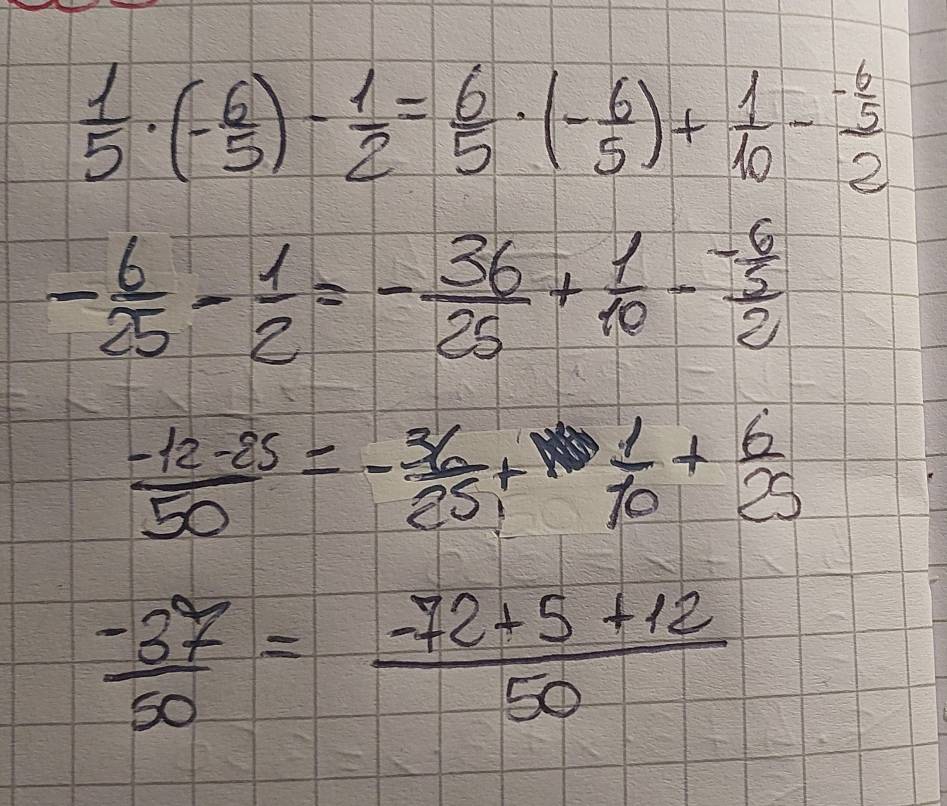 1/5 · (-6/5) - 1/2 = 6/5 · (-6/5) + 1/10 - (-6/5)/2
-6/25 - 1/2 = -36/25 + 1/10 - (-6/5)/2
(-12-25)/50 = -36/25 + 1/10 + 6/25
-37/50 = (-72+5+12)/50